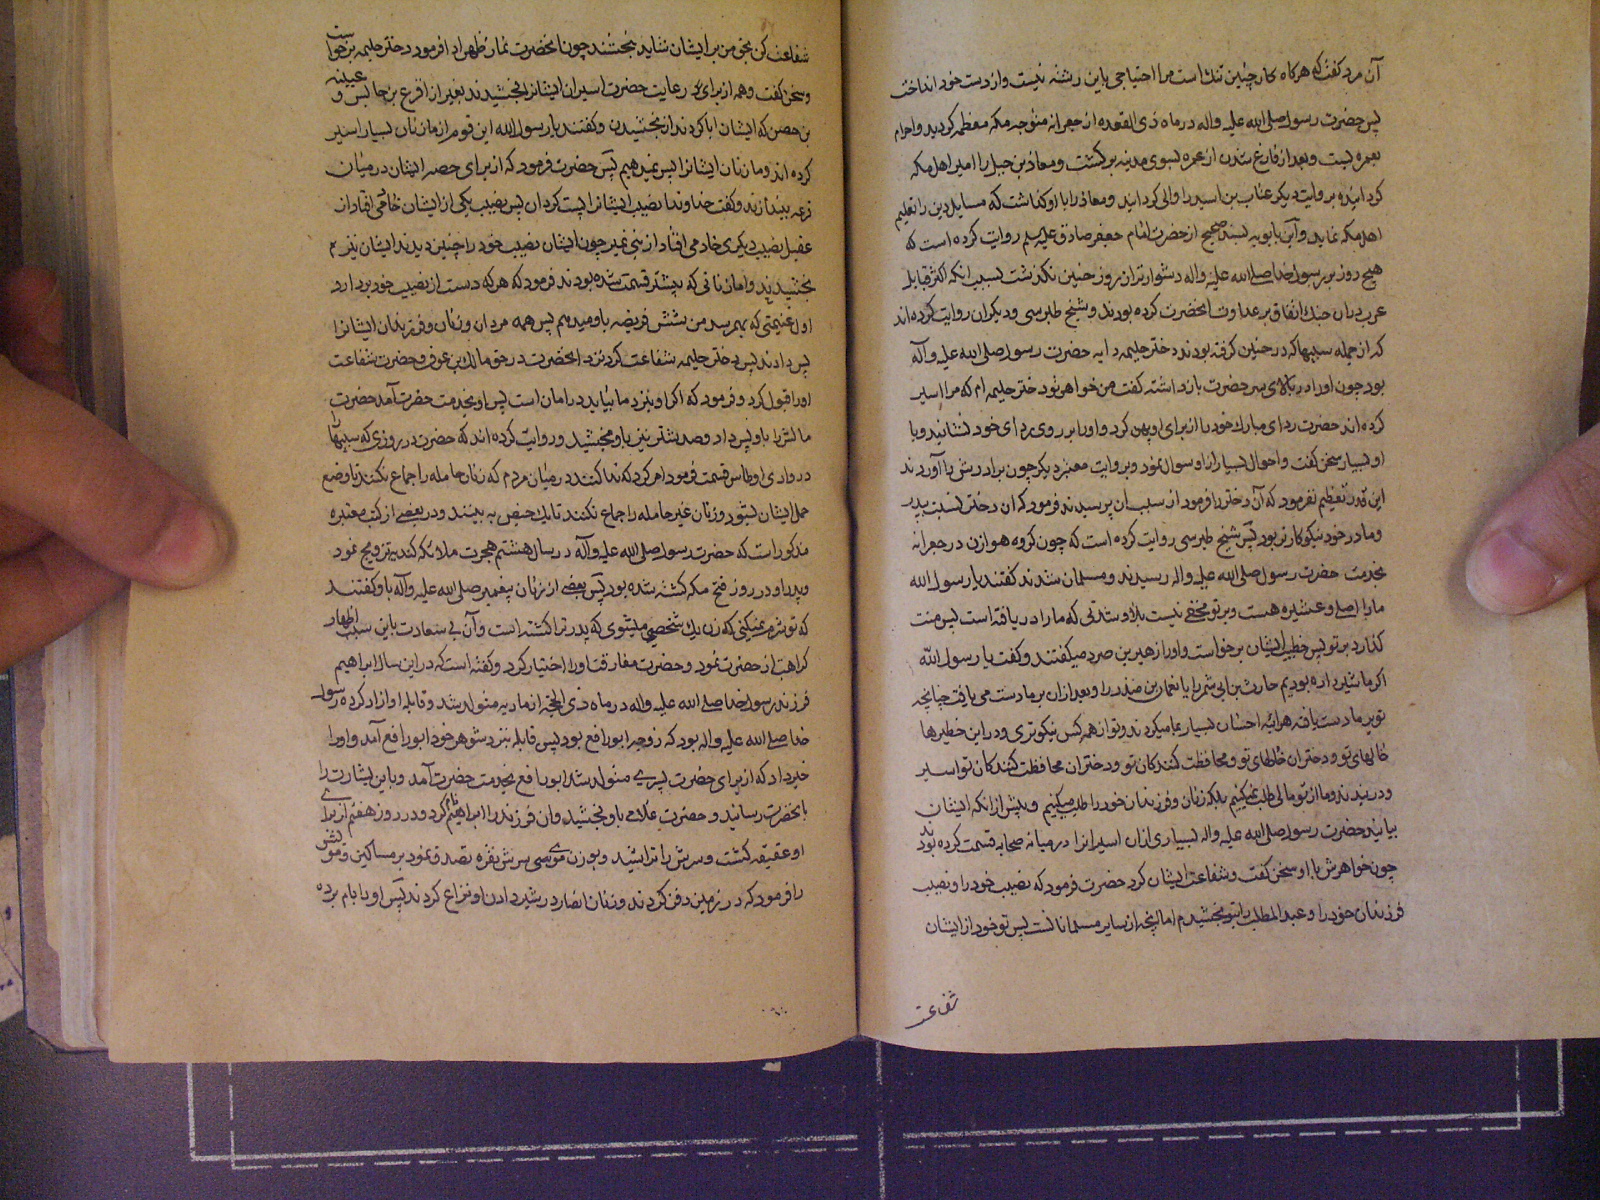 آن مرد کفت که هرکاه کار چنین تنک است مرا احتیاجی باین رشته نیست و از دست خود انداخت
پس حضرت رسول صلی الله علیه واله در ماه ذی القعده از جعرانه متوجه مکه معظمه کردید و احرام
بعمره بست و بعد از فارغ شدن از عمره بسوی مدینه برکشت و معاذ بن جبل را امیر اهل مکه
کردانید و بروایت دیکر عتاب بن اسید را والی کردانید و معاذ را با او کذاشت که مسایل دین را تعلیم
اهل مکه نماید و ابن بابویه بسند صحیح از حضرت امام جعفر صادق علیه السلم روایت کرده است که
هیچ روز بر رسول خدا صلی الله علیه واله دشوارتر از روز حنین نکذشت بسبب انکه اکثر قبایل
عرب دران جنک اتفاق بر عداوت انحضرت کرده بودند و شیخ طبرسی و دیکران روایت کرده اند
که از جمله سبیها که در حنین کرفته بودند دختر حلیمه دایه حضرت رسول صلی الله علیه واله
بود چون او را در بالای سر حضرت بازداشتند کفت من خواهر تو دختر حلیمه ام که مرا اسیر
کرده اند حضرت ردای مبارک خود را از برای او پهن کرد و او را بر روی ردای خود نشانید و با
او بسیار سخن کفت و احوال بسیار از او سوال نمود و بروایت معتبر دیکر چون برادرش را آوردند
این قدر تعظیم نفرمود که آن دختر را فرمود از سبب ان پرسیدند فرمود که ان دختر نسبت بپدر
و مادر خود نیکوکارتر بود پس شیخ طبرسی روایت کرده است که چون کروه هوازن در جعرانه
بخدمت حضرت رسول صلی الله علیه واله رسیدند و مسلمان شدند کفتند یا رسول الله
ما را اصل و عشیره هست و بر تو مخفی نیست بلا و شدتی که ما را دریافته است پس منت
کذار بر تو پس خطیب ایشان برخواست و او زهیر بن صرد میکفتند و کفت یا رسول الله
اکر ما شیر داده بودیم حارث بن ابی شمر را یا نعمان بن منذر را و بعد از ان بر ما دست می یافت چنانچه
تو بر ما دست یافته هراینه احسان بسیار بما میکردند و تو از همه کس نیکوتری و در این خطیرها
خالهای تو و دختران خالهای تو و محافظت کنندکان تو و دختران محافظت کنندکان تو اسیر
و در بندند و ما از تو مالی طلب نمیکنیم بلکه زنان و فرزندان خود را طلب میکنیم و پیش از انکه ایشان
بیایند حضرت رسول صلی الله علیه واله بسیاری ازان اسیرانرا در میانه صحابه قسمت کرده بودند
چون خواهرش با او سخن کفت و شفاعت ایشان کرد حضرت فرمود که نصیب خود را و نصیب
فرزندان خود را و عبد المطلب را بتو بخشیدم اما انچه از سایر مسلمانانست پس تو خود از ایشان
شفاعت
شفاعت کن بحق من بر ایشان شاید ببخشند چون انحضرت نماز ظهر ادا فرمود دختر حلیمه برخواست
و سخن کفت و همه از برای رعایت حضرت اسیران ایشانرا بخشیدند بغیر از اقرع بن حابس و عیینه
بن حصن که ایشان ابا کردند از بخشیدن و کفتند یا رسول الله این قوم از ما زنان بسیار اسیر
کرده اند و ما زنان ایشانرا پس نمیدهیم پس حضرت فرمود که از برای حصه ایشان در میان
قرعه بیندازند و کفت خداوندا نصیب ایشانرا پست کردان پس نصیب یکی از ایشان خادمی افتاد از
عقیل نصیب دیکری خادمی افتاد از بنی نمیر چون ایشان نصیب خود را چنین دیدند ایشان نیز
بخشیدند و اما زنانی که پیشتر قسمت شده بودند فرمود که هر که دست از نصیب خود بردارد
اول غنیمتی که بهم رسد من شش فریضه باو میدهم پس همه مردان و زنان و فرزندان ایشانرا
پس دادند پس دختر حلیمه شفاعت کرد نزد انحضرت در حق مالک بن عوف و حضرت شفاعت
او را قبول کرد و فرمود که اکر او بنزد ما بیاید در امان است پس او بخدمت حضرت آمد حضرت
مالش را باو پس داد و صد شتر نیز باو بخشید و روایت کرده اند که حضرت در روزی که سبیها را
در وادی اوطاس قسمت فرمود امر کرد که ندا کنند در میان مردم که زنان حامله را جماع نکنند تا وضع
حمل ایشان بشود و زنان غیر حامله را جماع نکنند تا یک حیض به بینند و در بعضی از کتب معتبره
مذکور است که حضرت رسول صلی الله علیه واله در سال هشتم هجرت ملائکه کندیه تزویج نمود
و پدر او در روز فتح مکه کشته شده بود پس بعضی از زنان پیغمبر صلی الله علیه واله باو کفتند
که تو شرم نمیکنی که زن یک شخصی میشوی که پدر ترا کشته است و آن بی سعادت باین سبب اظهار
کراهت از حضرت نمود و حضرت مفارقت او را اختیار کرد و کفته است که در این سال ابراهیم
فرزند رسول خدا صلی الله علیه واله در ماه ذی الحجه از ماریه متولد شد و قابله او ازاد کرده رسول
خدا صلی الله علیه واله بود که زوجه ابورافع بود پس قابله بنزد شوهر خود ابورافع آمد و او را
خبر داد که از برای حضرت پسری متولد شد ابورافع بخدمت حضرت آمد و باین بشارت را
بانحضرت رسانید و حضرت غلامی باو بخشید و ان فرزند را ابراهیم نام کرد و در روز هفتم از برای
او عقیقه کشت و سرش را تراشید و بوزن موی سرش نقره تصدق نمود بر مساکین و مویش
را فرمود که در زمین دفن کردند و زنان انصار در شیر دادن او نزاع کردند پس او را بام برده